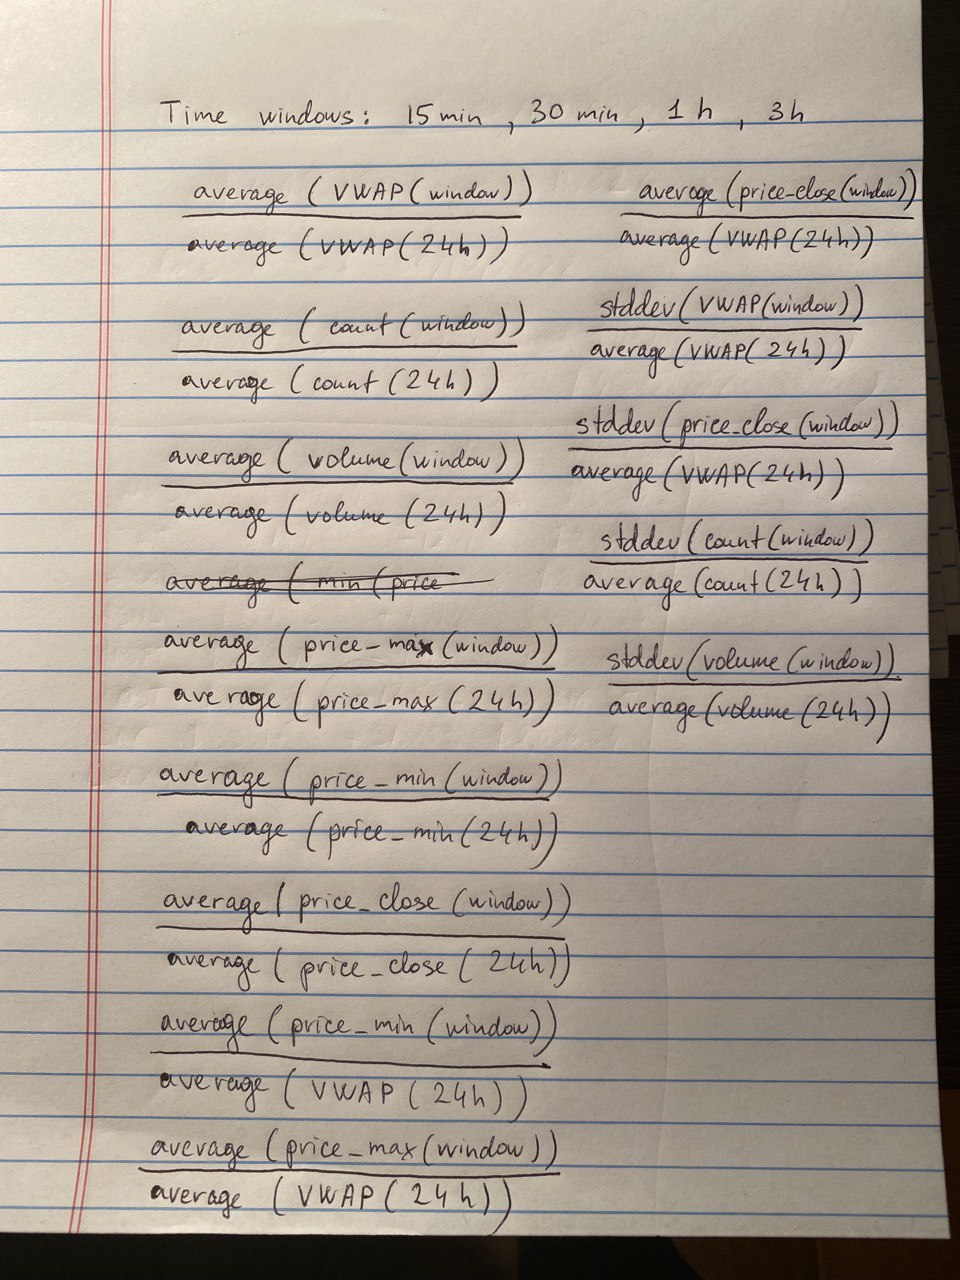 Time windows: 15 min, 30 min, 1 h, 3h
average (VWAP(window))
average (VWAP(24h))
average (count(window))
average (count(24h))
average (volume(window))
average (volume (24h))
average ( min (price
average (price_max (window))
average (price_max (24h))
average (price_min (window))
average (price_min (24h))
average (price_close (window))
average (price_close (24h))
average (price_min (window))
average (VWAP (24h))
average (price_max (window))
average (VWAP (24h))
average (price_close(window))
average (VWAP(24h))
stddev (VWAP(window))
average (VWAP(24h))
stddev (price_close (window))
average (VWAP(24h))
stddev (count(window))
average (count(24h))
stddev (volume (window))
average (volume (24h))